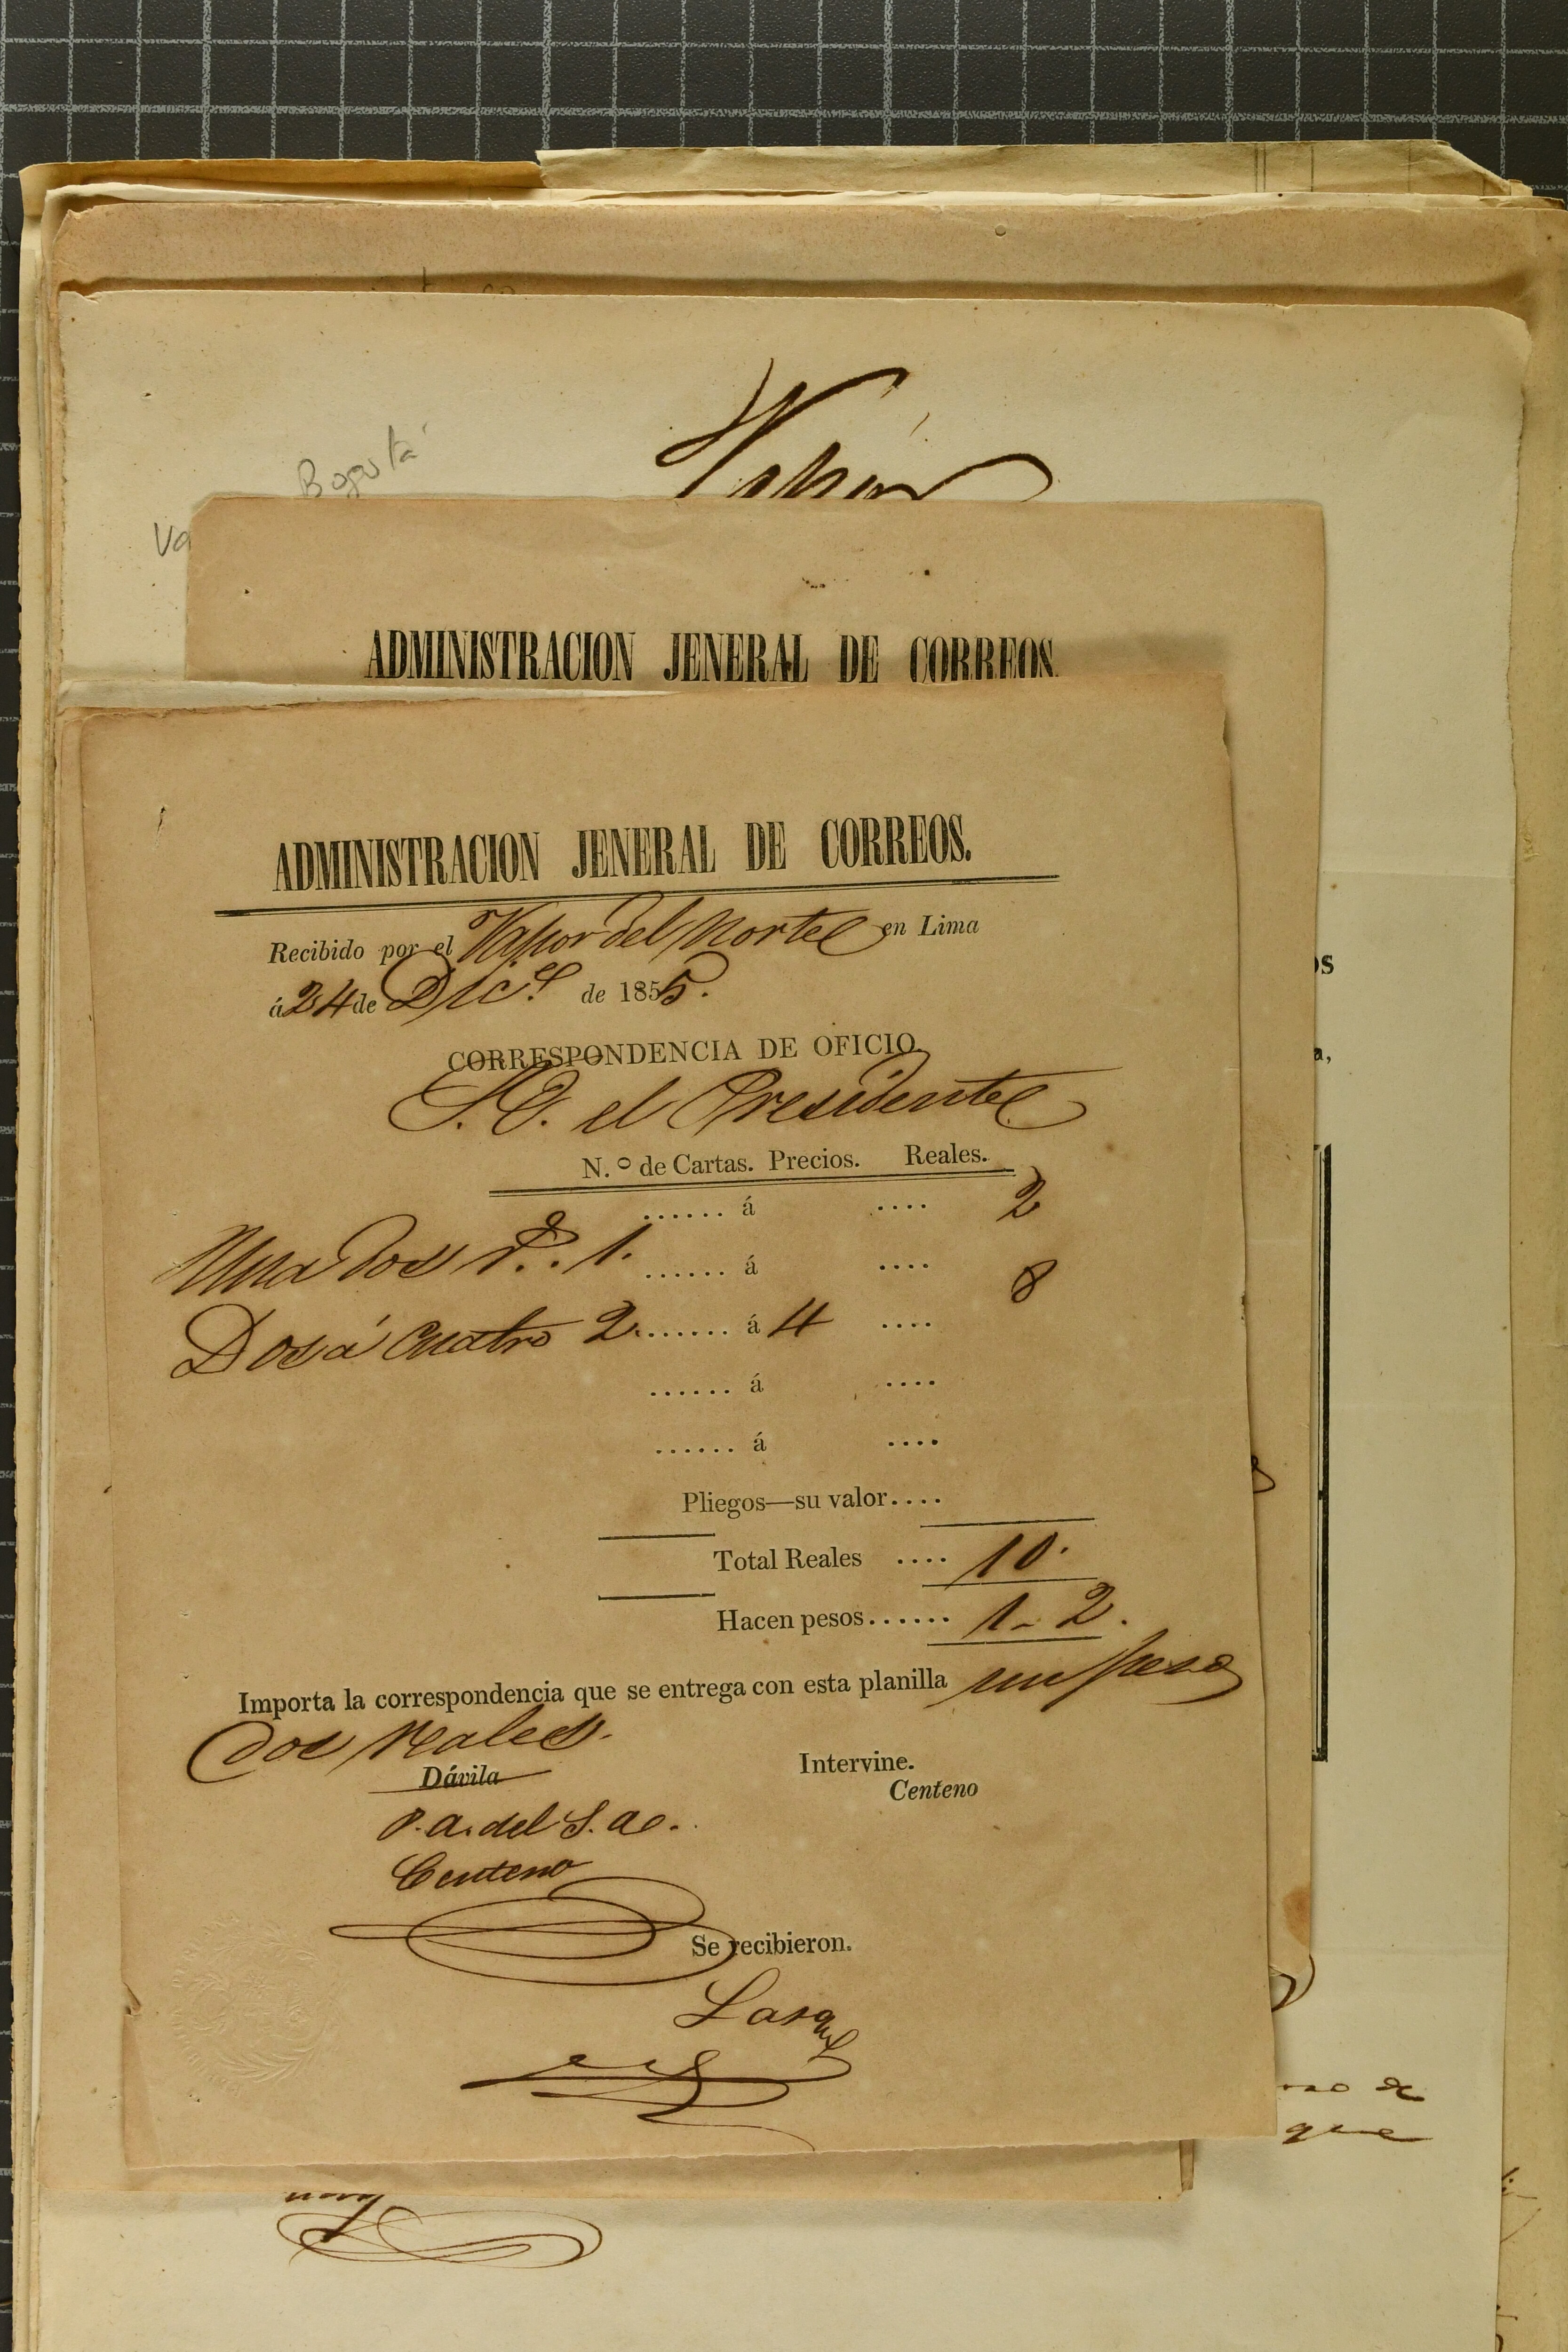 Bogotá
ADMINISTRACION JENERAL DE CORREOS.
ADMINISTRACION JENERAL DE CORREOS.
Recibido por el Vapor del Norte en Lima
á 24 de Dic.e de 1855.
CORRESPONDENCIA DE OFICIO.
S. E. el Presidente
N.o de Cartas. Precios. Reales.
...... á .... 2
Una dos r.s 1. ...... á .... 8
Dos á cuatro 2 ....... á 4 ....
...... á ....
...... á ....
Pliegos—su valor....
Total Reales .... 10.
Hacen pesos...... 1-2.
Importa la correspondencia que se entrega con esta planilla un peso
dos reales.
Dávila Intervine.
Centeno
P. a. del S. ao.
Centeno
Se recibieron.
que